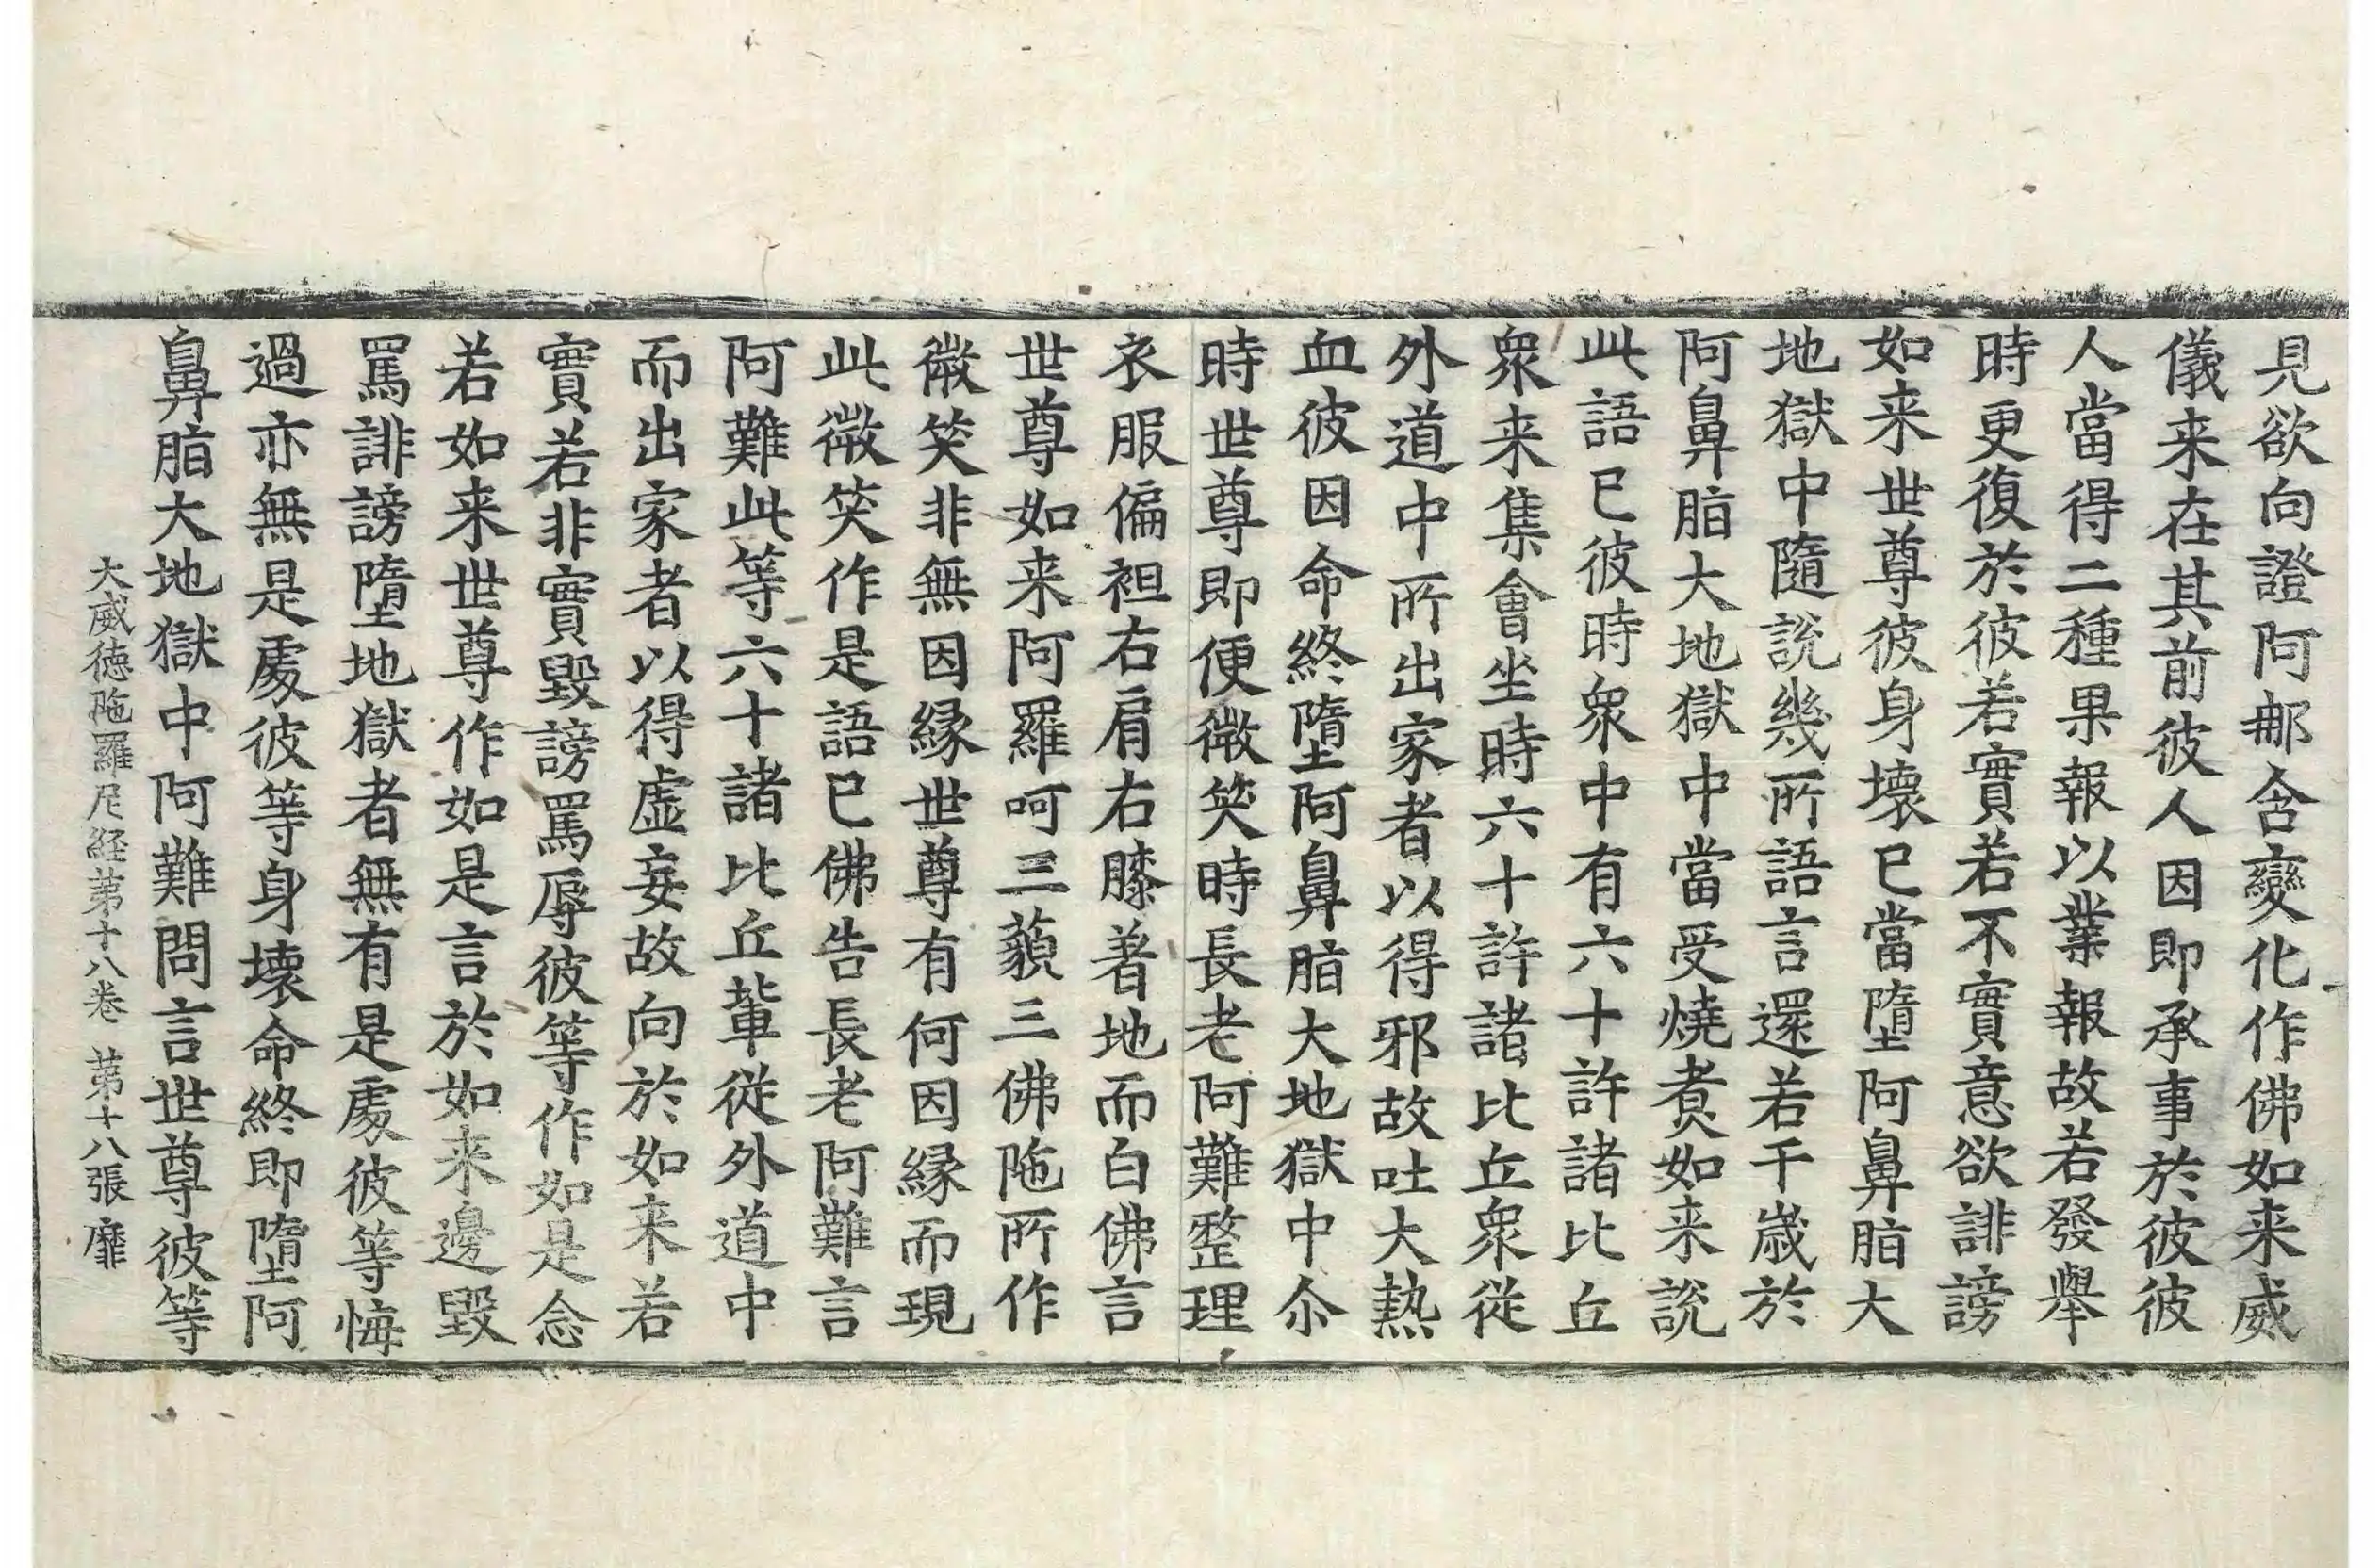 見欲向證阿那含變化作佛如来威
儀来在其前彼人因即承事於彼彼
人當得二種果報以業報故若發舉
時更復於彼若實若不實意欲誹謗
如来世尊彼身壞已當墮阿鼻脂大
地獄中隨說幾所語言還若干歲於
阿鼻脂大地獄中當受燒煑如来說
此語已彼時衆中有六十許諸比丘
衆来集會坐時六十許諸比丘衆從
外道中所出家者以得邪故吐大熱
血彼因命終墮阿鼻脂大地獄中尒
時世尊即便微笑時長老阿難整理
衣服偏袒右肩右膝著地而白佛言
世尊如来阿羅呵三藐三佛陁所作
微笑非無因縁世尊有何因縁而現
此微笑作是語已佛告長老阿難言
阿難此等六十諸比丘輩從外道中
而出家者以得虚妄故向於如来若
實若非實毀謗罵辱彼等作如是念
若如来世尊作如是言於如来邊毀
罵誹謗墮地獄者無有是處彼等悔
過亦無是處彼等身壞命終即墮阿
鼻脂大地獄中阿難問言世尊彼等
大威徳陁羅尼経第十八卷 第十八張 靡